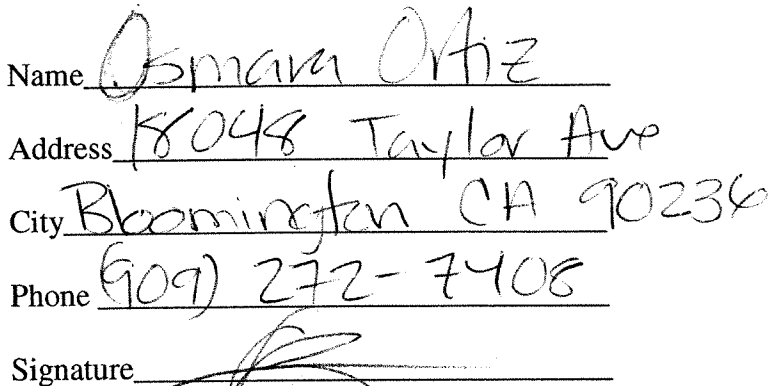 Name Osmara Ortiz
Address 18048 Taylor Ave
City Bloomington CA 90236
Phone (909) 272-7408
Signature